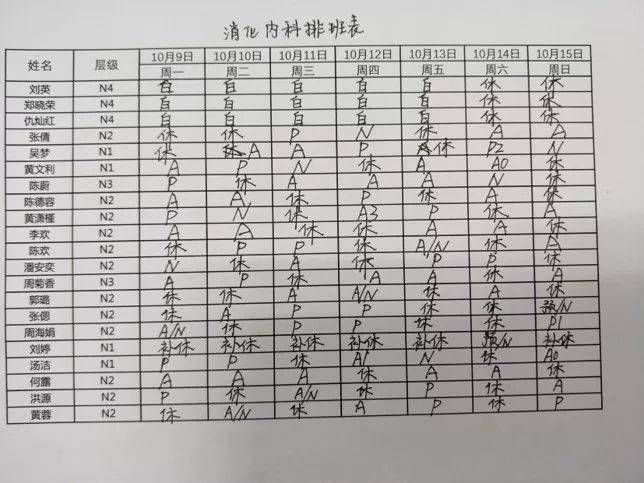 消化内科排班表
姓名 层级 10月9日 10月10日 10月11日 10月12日 10月13日 10月14日 10月15日
周一 周二 周三 周四 周五 周六 周日
刘英 N4 白 白 白 白 白 休 休
郑晓荣 N4 白 白 白 白 白 休 休
仇灿红 N4 白 白 白 白 白 休 休
张倩 N2 休 休 P N 休 A A
吴梦 N1 休 A A P 休 P2 N
黄文利 N1 A P N 休 A A0 休
陈蔚 N3 P 休 A A A N 休
陈德容 N2 A A 休 P 休 A 休
黄潇槿 N2 P N 休 A3 P 休 A
李欢 N2 A A 休 休 A A 休
陈欢 N2 休 P P 休 A/N 休 A
潘安奕 N2 N 休 A 休 P P 休
周菊香 N3 A P 休 A A 休 A
郭璐 N2 休 休 A A/N 休 A 休
张偲 N2 休 A P P 休 休 预/N
周海娟 N2 A/N 休 P P 休 休 P1
刘婷 N1 补休 补休 补休 补休 补休 预/N 补休
汤洁 N1 P P 休 A1 N 休 A0
何露 N2 A A A 休 A A 休
洪源 N2 P 休 A/N 休 P 休 A
黄蓉 N2 休 A/N 休 A P P 休